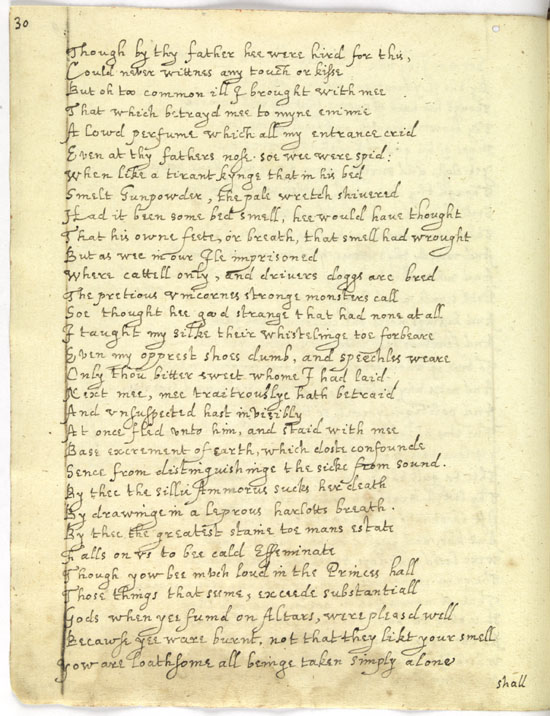 30
Though by thy father hee were hird for this,
Could never wittnes any touch or kisse
But oh too common ill I brought with mee
That which betrayd mee to myne enimie
A lowd perfume which all my entrance crid
Even at thy fathers nose. soe wee were spid.
When like a tirant kynge that in his bed
Smelt Gunpowder, the pale wretch shivered
Had it been some bed smell, hee would have thought
That his owne feete, or breath, that smell had wrought
But as wee in our Ile imprisoned
Where cattell only, and drivers doggs are bred
The pretious unicornes stronge monsters call
Soe thought hee good strange that had none at all
I taught my silke their whistelinge toe forbeare
Even my opprest shoes dumb, and speechles weare
Only thou bitter sweet whome I had laid
Next mee, mee traitrouslye hath betraid
And unsuspected hast invisibly
At once fled unto him, and staid with mee
Base excrement of earth, which doste confounde
Sence from distinguishinge the sicke from sound.
By thee the sillie Ammorus sucks her death
By drawinge in a leprous harlotts breath.
By thee the greatest staine toe mans estate
Falls on us to bee cald Effeminate
Though yow bee much loud in the Princess hall
Those things that seeme, exceede substantiall
Gods when yee fumd on Altars, were pleasd well
Becawse yee ware burnt, not that they likt your smell
Yow are loathsome all beinge taken simply alone
shall